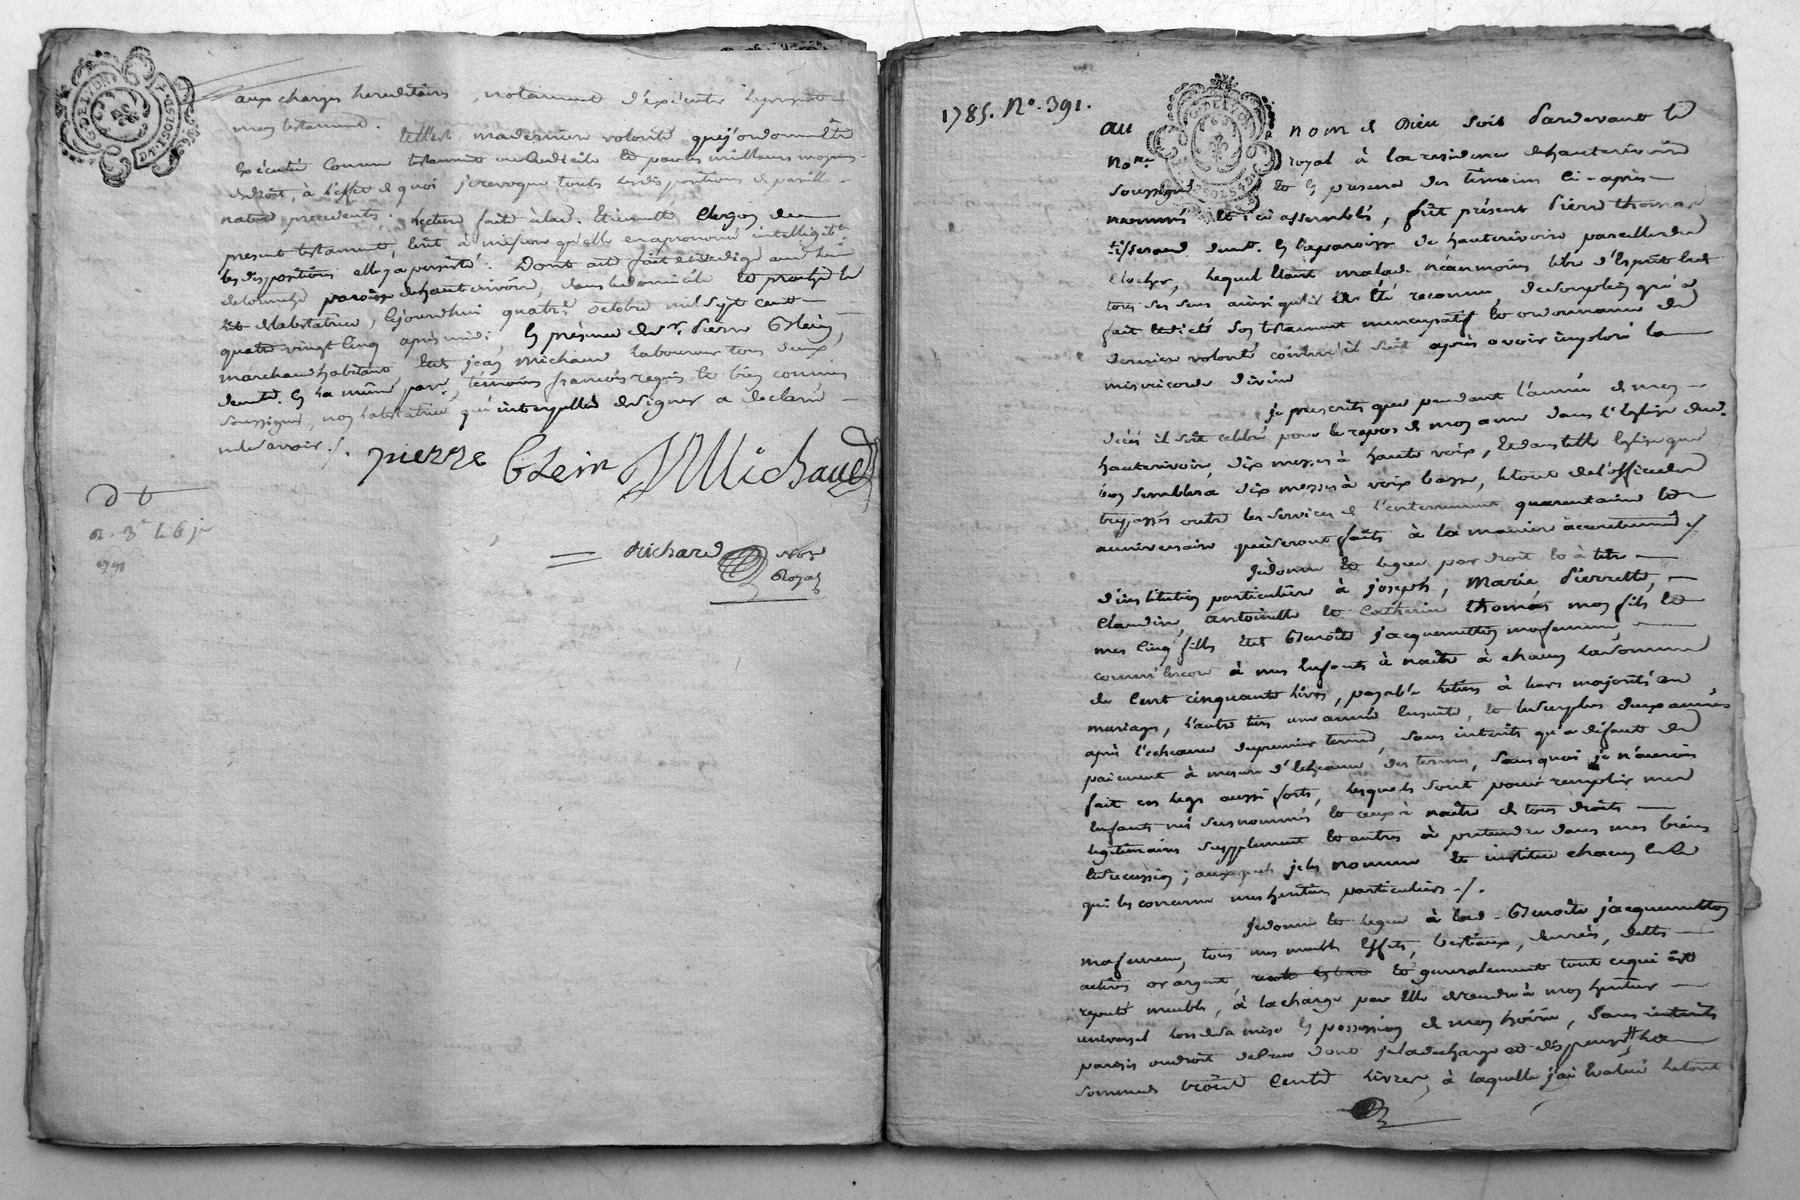 aux charges hereditaires, notamment d'exécuter le present
mon testament. telle est ma derniere volonté que j'ordonne être
exécuté comme testament ou codicile et par les meilleurs moyens
de droit, à l'effet de quoi je revoque toutes les dispositions de pareille
nature precedents. Lecture faite à lad. Etiennette Clergon du
present testament, l'ait à mesure qu'elle en a prononcé intelligible
les dispositions elle y a persisté. Dont acte fait et redigé au
paroisse de hauterivoire, dans le domicile
de la testatrice, cejourdhui quatre octobre mil sept cent
quatre vingt cinq après midi, en présence de sr. Pierre Blein,
marchand habitant et jean Michaud laboureur tous deux
demt. en la même parr. témoins français requis et bien connus
soussignés, non la testatrice qui interpellée de signer a declaré
ne le savoir ./.
pierre Blein J Michaud
Richard nore
Royal
1785. No. 391.
au nom de Dieu soit Pardevant le
nore royal à la residence de hauterivoire
soussigné et en presence des témoins ci-après
nommés et ici assemblés, fût présent Pierre thomas
tisserand demt. en la paroisse de hauterivoire
clocher, lequel étant malade néanmoins libre d'Esprit
tous ses sens ainsi qu'il a été reconnu, de son plein gré a
fait et dicté son testament nuncupatif et ordonnance de
derniere volonté comme il suit après avoir imploré la
misericorde divine
je prescrits que pendant l'année de mon
décés il soit celebré pour le repos de mon ame dans l'Eglise dud.
hauterivoire, dix messes à haute voix, et dans telle Eglise que
bon semblera dix messes à voix basse, le tout de l'office des
trepassés outre les services de l'enterrement quarantaine et
anniversaire qui seront faits à la maniere accoutumée ./.
Je donne et legue par droit et à titre
d'institution particuliere à joseph, Marie Pierrette,
Claudine, antoinette et Catherine thomas mon fils et
mes cinq filles et Benoite jacquemetton ma femme,
comm'encore à mes Enfants à naitre à chacun la somme
de cent cinquante livres, payable le tiers à leurs majorité ou
mariage, l'autre tiers une année ensuite, et le surplus deux années
après l'echeance du premier terme, sans interets qu'a defaut de
paiement à mesure d'Echeance des termes, sans quoi je n'aurois
fait ces legs aussi forts, lesquels sont pour remplir mes
Enfants nés susnommés et ceux à naitre de tous droits
legitimaires supplement et autres à pretendre dans mes biens
et succession ; auxquels je les nomme et institue chacun en ce
qui les concerne mes heritiers particuliers ./.
Je donne et legue à lad. Benoite jacquemetton
ma femme, tous mes meubles Effets, bestiaux, denrées, dettes
actives or argent, et generalement tout ce qui est
reputé meuble, à la charge par Elle de rendre à mon heritier
universel lors de sa mise en possession de mon hoirie, sans interets
dont je la decharge et dispense la
somme de trois Cents livres, à laquelle j'ai Evalué le tout